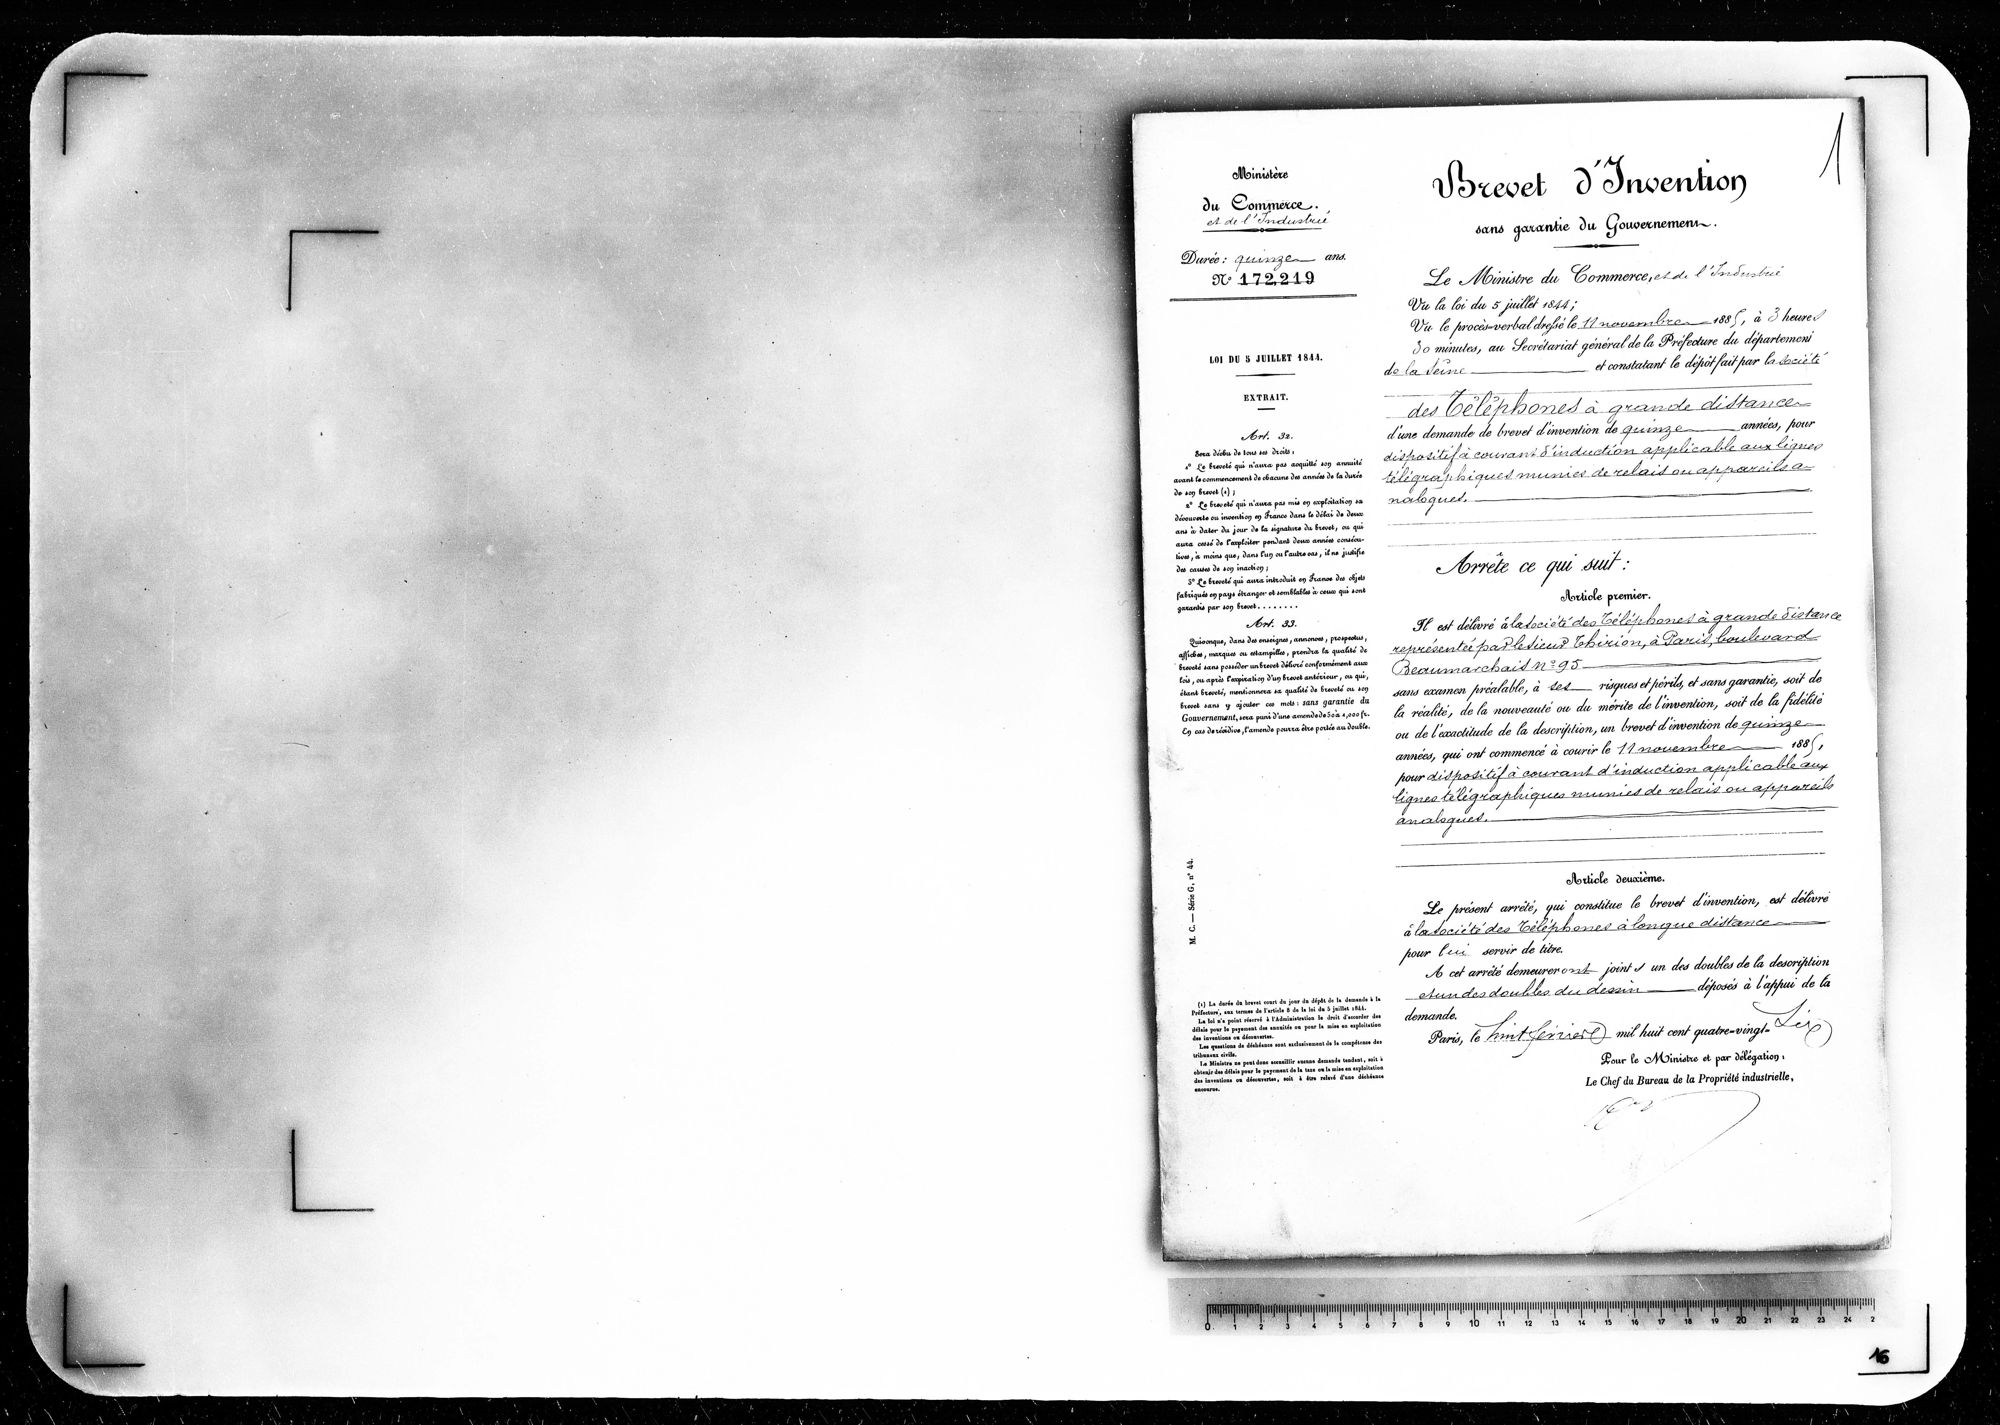 1
Ministère
du Commerce.
et de l'Industrie
Durée : quinze ans.
N° 172,219
LOI DU 5 JUILLET 1844.
EXTRAIT.
Art. 32.
Sera déchu de tous ses droits :
1° Le breveté qui n'aura pas acquitté son annuité
avant le commencement de chacune des années de la durée
de son brevet (1) ;
2° Le breveté qui n'aura pas mis en exploitation sa
découverte ou invention en France dans le délai de deux
ans à dater du jour de la signature du brevet, ou qui
aura cessé de l'exploiter pendant deux années consécu-
tives, à moins que, dans l'un ou l'autre cas, il ne justifie
des causes de son inaction ;
3° Le breveté qui aura introduit en France des objets
fabriqués en pays étranger et semblables à ceux qui sont
garantis par son brevet........
Art. 33.
Quiconque, dans des enseignes, annonces, prospectus,
affiches, marques ou estampilles, prendra la qualité de
breveté sans posséder un brevet délivré conformément aux
lois, ou après l'expiration d'un brevet antérieur, ou qui,
étant breveté, mentionnera sa qualité de breveté ou son
brevet sans y ajouter ces mots : sans garantie du
Gouvernement, sera puni d'une amende de 50 à 1,000 fr.
En cas de récidive, l'amende pourra être portée au double.
M. C. — Série G, n° 44.
(1) La durée du brevet court du jour du dépôt de la demande à la
Préfecture, aux termes de l'article 8 de la loi du 5 juillet 1844.
La loi n'a point réservé à l'Administration le droit d'accorder des
délais pour le payement des annuités ou pour la mise en exploitation
des inventions ou découvertes.
Les questions de déchéance sont exclusivement de la compétence des
tribunaux civils.
Le Ministre ne peut donc accueillir aucune demande tendant, soit à
obtenir des délais pour le payement de la taxe ou la mise en exploitation
des inventions ou découvertes, soit à être relevé d'une déchéance
encourue.
Brevet d'Invention
sans garantie du Gouvernement.
Le Ministre du Commerce, et de l'Industrie
Vu la loi du 5 juillet 1844 ;
Vu le procès-verbal dressé le 11 novembre 1885, à 3 heures
30 minutes, au Secrétariat général de la Préfecture du département
de la Seine et constatant le dépôt fait par la société
des Téléphones à grande distance
d'une demande de brevet d'invention de quinze années, pour
dispositif à courant d'induction applicable aux lignes
télégraphiques munies de relais ou appareils a-
nalogues.
Arrête ce qui suit :
Article premier.
Il est délivré à la société des Téléphones à grande distance
représentée par le sieur Thirion, à Paris, boulevard
Beaumarchais n° 95
sans examen préalable, à ses risques et périls, et sans garantie, soit de
la réalité, de la nouveauté ou du mérite de l'invention, soit de la fidélité
ou de l'exactitude de la description, un brevet d'invention de quinze
années, qui ont commencé à courir le 11 novembre 1885,
pour dispositif à courant d'induction applicable aux
lignes télégraphiques munies de relais ou appareils
analogues.
Article deuxième.
Le présent arrêté, qui constitue le brevet d'invention, est délivré
à la société des Téléphones à longue distance
pour lui servir de titre.
A cet arrêté demeureront joints un des doubles de la description
et un des doubles du dessin déposés à l'appui de la
demande.
Paris, le huit février mil huit cent quatre-vingt-six
Pour le Ministre et par délégation :
Le Chef du Bureau de la Propriété industrielle,
0 1 2 3 4 5 6 7 8 9 10 11 12 13 14 15 16 17 18 19 20 21 22 23 24 2
16